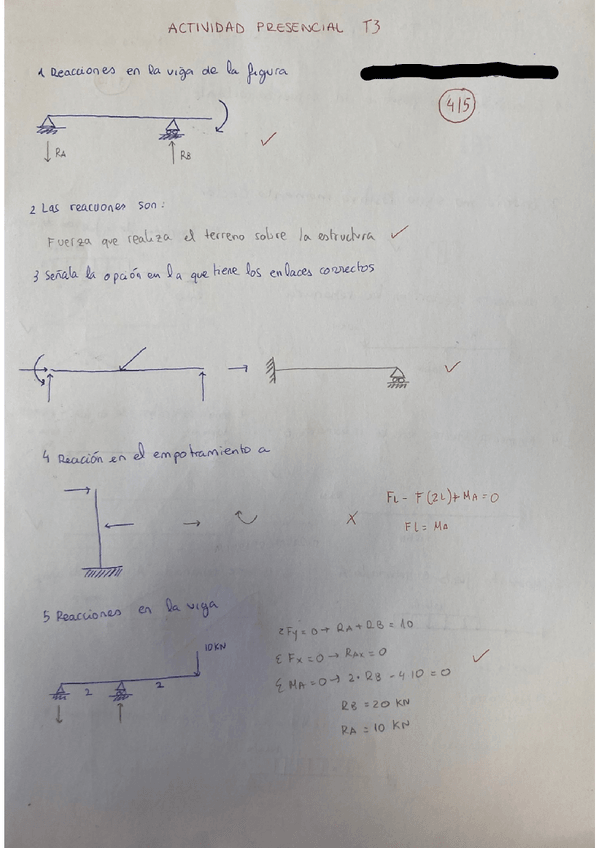 ACTIVIDAD PRESENCIAL T3
1 Reacciones en la viga de la figura
4/5
RA
RB
2 Las reacciones son:
Fuerza que realiza el terreno sobre la estructura
3 Señala la opción en la que tiene los enlaces correctos
4 Reación en el empotramiento a
FL - F(2L) + MA = 0
FL = MA
5 Reacciones en la viga
ΣFy = 0 → RA + RB = 10
ΣFx = 0 → RAx = 0
ΣMA = 0 → 2 · RB - 4 · 10 = 0
RB = 20 KN
RA = 10 KN
10 KN
2 2